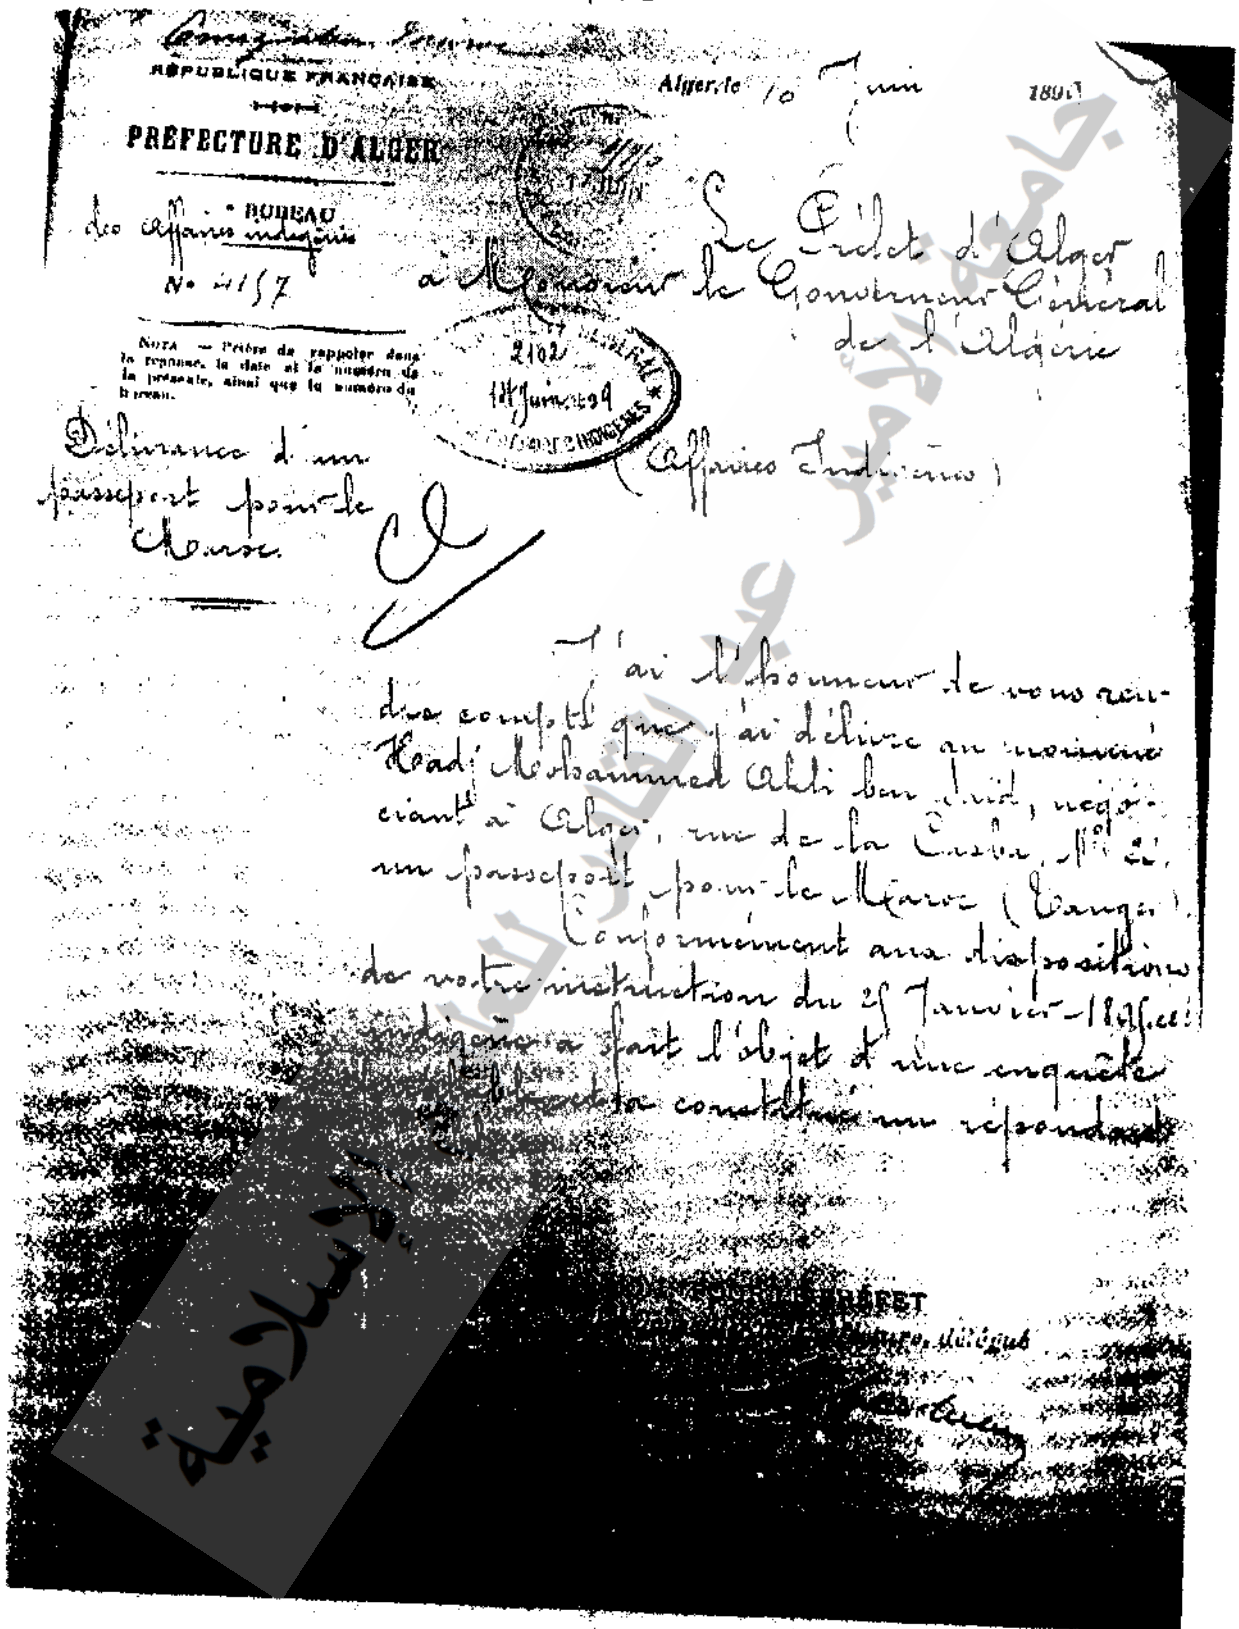 RÉPUBLIQUE FRANÇAISE
PRÉFECTURE D'ALGER
BUREAU
des Affaires indigènes
No 4157
NOTA — Prière de rappeler dans
la réponse, la date et le numéro de
la présente, ainsi que le numéro du
bureau.
Délivrance d'un
passeport pour le
Maroc.
Alger, le 10 Juin 189
Le Préfet d'Alger
à Monsieur le Gouverneur Général
de l'Algérie
2102
JUIN
GÉNÉRAL
INDIGÈNES
(Affaires Indigènes)
J'ai l'honneur de vous ren-
dre compte que j'ai délivré au nommé
Hadj Mohammed Ahli ben Saïd, négo-
ciant à Alger, rue de la Casba, No
un passeport pour le Maroc (Tanger).
Conformément aux dispositions
de votre instruction du 25 Janvier 1895, cet
indigène a fait l'objet d'une enquête
et a constitué un répondant
POUR LE PRÉFET
délégué
جامعة الأمير عبد القادر للعلوم الإسلامية